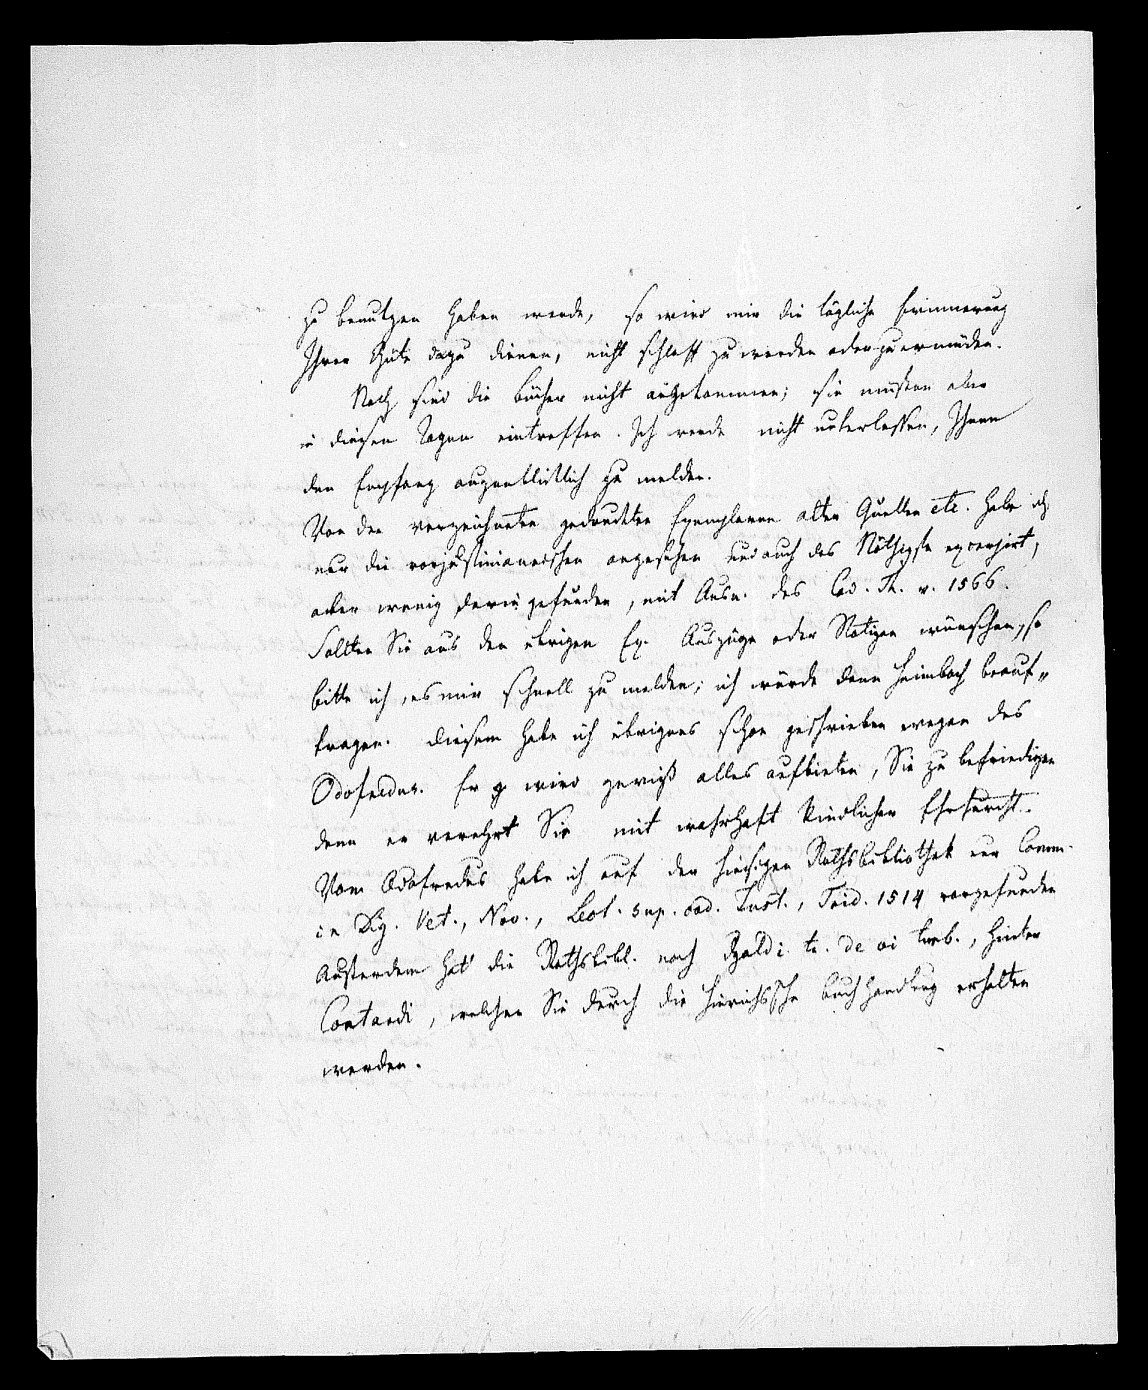 zu benutzen haben werde, so wird mir die tägliche Erinnerung
Ihrer Güte dazu dienen, nicht schlaff zu werden oder zu ermüden.
Noch sind die Bücher nicht angekommen; sie müssen aber
in diesen Tagen eintreffen. Ich werde nicht unterlassen, Ihnen
den Empfang augenblicklich zu melden.
Von den verzeichneten gedruckten Exemplaren alter Quellen etc. habe ich
nur die vorjustinianeischen angesehen und auch das Nöthigste excerpirt,
aber wenig darin gefunden, mit Ausn. des Cod. Th. v. 1566.
Sollten Sie aus den übrigen Ex. Auszüge oder Notizen wünschen, so
bitte ich, es mir schnell zu melden; ich würde dann Heimbach beauf-
tragen. Diesem habe ich übrigens schon geschrieben wegen des
Odofredus. Er wird gewiß alles aufbieten, Sie zu befriedigen
denn er verehrt Sie mit wahrhaft kindlicher Ehrfurcht.
Vom Odofredus habe ich auf der hiesigen Rathsbibliothek nur Comm.
in Dig. Vet., Nov., Lect. sup. cod. Inst., Trid. 1514 vorgefunden
Außerdem hat die Rathsbibl. noch Baldi tr. de vi turb., hinter
Contardi, welchen Sie durch die Hinrichssche Buchhandlung erhalten
werden.